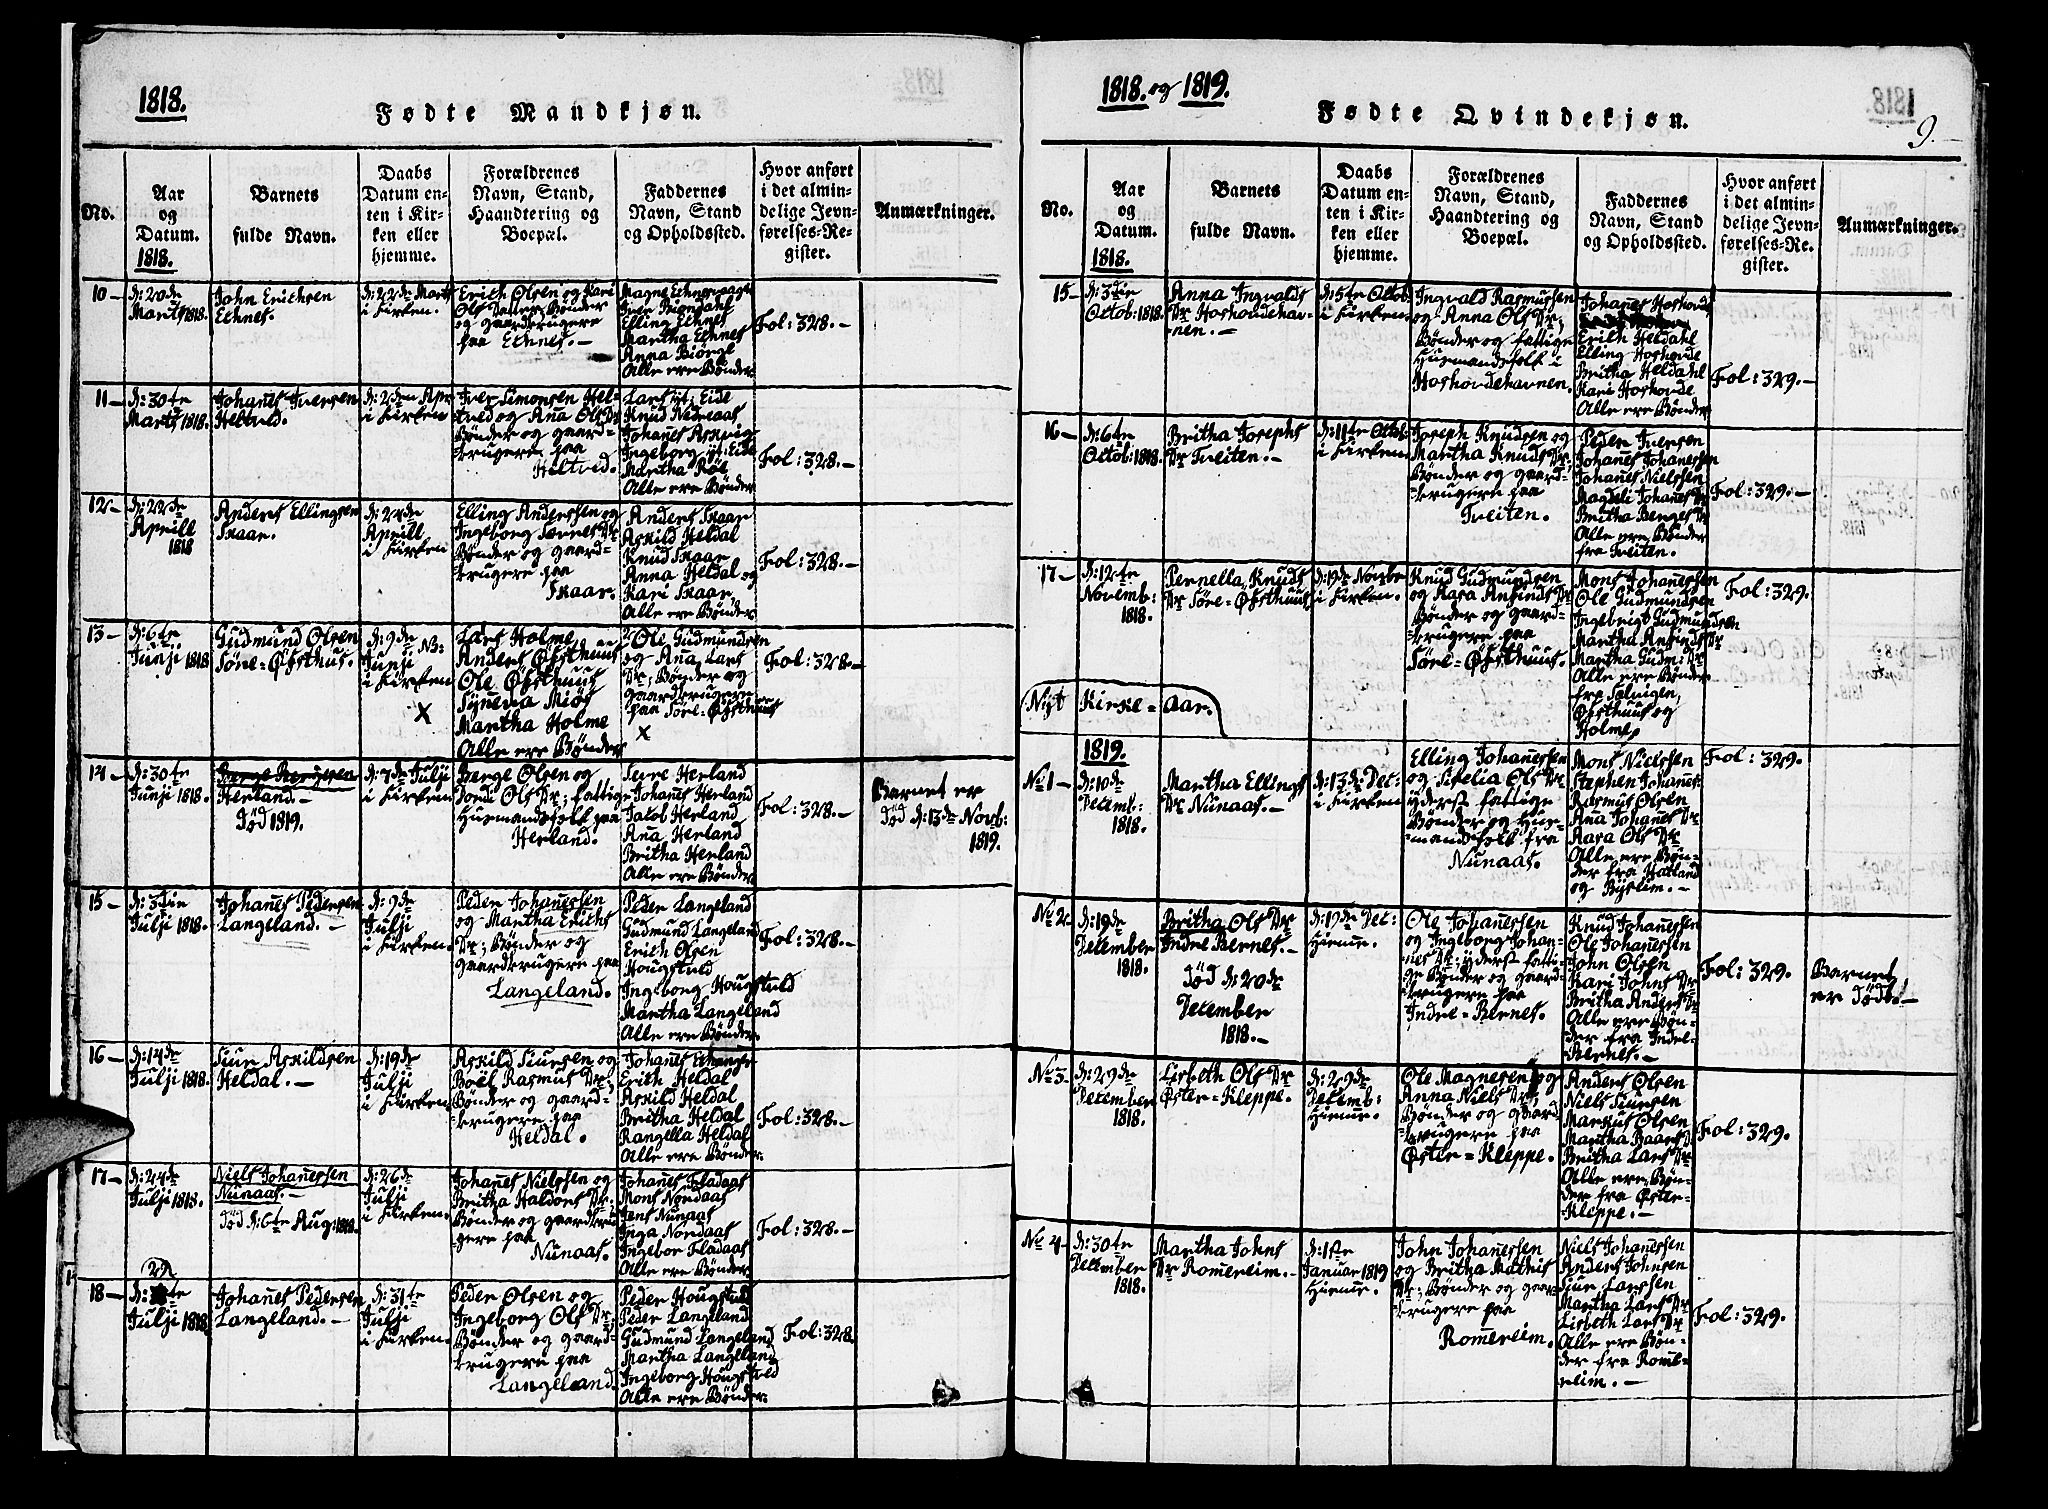 1818.
Fødte Mandkjøn.
No.
Aar
og
Datum.
1818.
Barnets
fulde Navn.
Daabs
Datum en-
ten i Kir-
ken eller
hjemme.
Forældrenes
Navn, Stand,
Haandtering og
Boepæl.
Faddernes
Navn, Stand
og Opholdssted.
Hvor anført
i det almin-
delige Jevn-
førelses-Re-
gister.
Anmærkninger.
10
d: 20de
Marts 1818.
John Erichsen
Echnes.
d: 22de Marts
i Kirken.
Erich Olsen og Kari
Ols Datter, Bønder
og gaardbrugere
paa Echnes.
Elling Echnes
Martha Echnes
Anna Biørge
Alle ere Bønder
Fol: 328.
11
d: 30te
Marts 1818.
Johanes Iversen
Heltved.
d: 2den Apr
i Kirken
Iver Simonsen Hel-
tved og Ana Ols Dr
Bønder og gaard-
brugere paa
Heltved.
Lars yt: Eide
Knud Nedreaas
Johanes Askvig
Ingeborg yt: Eide
Martha Røe
Alle ere Bønder
Fol: 328.
12
d: 22de
Aprill
1818
Anders Ellingsen
Skaar.
d: 24de
Aprill
i Kirken
Elling Anderssen og
Ingeborg Sørens Dr
Bønder og gaard-
brugere paa
Skaar.
Anders Skaar
Askild Heldal
Knud Skaar
Anna Heldal og
Kari Skaar
Alle ere Bønder
Fol: 328.
13
d: 6te
Junji 1818
Gudmund Olsen
Søre=Øfsthus.
d: 9de
Junji NB:
i Kirken
X
Lars Holme
Anders Øfsthuus
Ole Øfsthuus
Syneva Miøs
Martha Holme
Alle ere Bønder
Ole Gudmundsen
og Ana Lars
Dr; Bønder og
gaardbrugere
paa Søre=Øfsthuus
X
Fol: 328.
14
d: 30te
Junji 1818.
Berge Bergesen
Herland.
død 1819.
d: 7de Julji
i Kirken
Berge Olsen og
Jordi Ols Dr; fattige
Huusmandsfolk paa
Herland.
Sevre Herland
Johanes Herland
Jacob Herland
Ana Herland
Britha Herland
Alle ere Bønder
Fol: 328.
Barnet er
død d: 13de Novb:
1819.
15
d: 3die
Julji 1818.
Johanes Pedersen
Langeland.
d: 9de
Julji
i Kirken
Peder Johanessen
og Martha Erichs
Dr; Bønder og
gaardbrugere paa
Langeland.
Peder Langeland
Gudmund Langeland
Erich Olsen
Hougstvld
Ingeborg Hougstvld
Martha Langeland
Alle ere Bønder
Fol: 328.
16
d: 14de
Julji 1818.
Siur Askildsen
Heldal.
d: 19de
Julji
i Kirken
Askild Siursen og
Boel Rasmus Dr;
Bønder og gaard-
brugere paa
Heldal.
Johanes Echanger
Erich Heldal
Askild Heldal
Britha Heldal
Rangella Heldal
Alle ere Bønder
Fol: 328.
17
d: 24de
Julji 1818.
Niels Johanessen
Nunaas.
død d: 6te Aug: 1818.
d: 26de
Julji
i Kirken.
Johanes Nielssen og
Britha Haldors Dr.
Bønder og gaardbru-
gere paa
Nunaas.
Johanes Fladaas
Mons Nordaas
Jens Nunaas
Inga Nordaas
Ingebor Fladaas
Alle ere Bønder
Fol: 328.
18
Julji 1818.
Johanes Pedersen
Langeland.
d: 31te
Julji
i Kirken.
Peder Olsen og
Ingeborg Ols Dr;
Bønder og gaard-
brugere paa
Langeland.
Peder Hougstvld
Peder Langeland
Gudmund Langeland
Martha Langeland
Ingeborg Hougstvld
Alle ere Bønder.
Fol: 328
1818. og 1819.
Fødte Qvindekjøn.
9.
No.
Aar
og
Datum.
1818.
Barnets
fulde Navn.
Daabs
Datum en-
ten i Kir-
ken eller
hjemme.
Forældrenes
Navn, Stand,
Haandtering og
Boepæl.
Faddernes
Navn, Stand
og Opholdssted.
Hvor anført
i det almin-
delige Jevn-
førelses-Re-
gister.
Anmærkninger.
15
d: 3die
Octob: 1818.
Anna Ingvalds
Dr Hoshovdehav-
nen.
d: 5te Octob:
i Kirken.
Ingvald Rasmussen
og Anna Ols Dr;
Bønder og fattige
Huusmandsfolk i
Hoshovdehavnen.
Johanes Hoshovde
Erich Heldahl
Elling Hoshovde
Britha Heldahl
Kari Hoshovde
Alle ere Bønder
Fol: 329.
16
d: 6te
Octob: 1818.
Britha Josephs
Dr Tveiten.
d: 11te Octob:
i Kirken.
Joseph Knudsen og
Martha Knuds Dr;
Bønder og gaard-
brugere paa
Tveiten.
Peder Iversen
Johanes Johanessen
Johanes Nielssen
Magdeli Johanes Dr
Britha Berges Dr
Alle ere Bønder
fra Tveiten.
Fol: 329.
17
d: 12te
Novemb:
1818.
Pernella Knuds
Dr Søre=Øfsthuus
i Kirken.
Knud Gudmundsen
og Kara Anfinds Dr
Bønder og gaard-
brugere paa
Søre=Øfsthuus.
Mons Johanessen
Ole Gudmundsen
Ingebrigt Gudmundsen
Martha Anfinds Dr
Martha Gudm: Dr
Alle ere Bønder
fra Sælvigen,
Øfsthuus og
Holme
Fol: 329.
Nyt Kirke=Aar.
1819.
No 1
d: 10de
Decemb:
1818.
Martha Ellings
Dr Nunaas.
d: 13de Dec:
i Kirken
Elling Johanessen
og Sirelia Ols Dr
yderst fattige
Bønder og Huus-
mandsfolk fra
Nunaas.
Mons Nielssen
Stephen Johanes:
Rasmus Olsen
Ana Johanes Dr
Kara Ols Dr
Alle ere Bøn-
der fra Hatland
og Byrlim.
Fol: 329.
No 2
d: 19de
December
1818.
Britha Ols Dr
Indre Bernes.
død d: 20de
December
1818.
d: 19de Dec:
Hiemme.
Ole Johanessen
og Ingeborg Johan-
nes Dr; yderst fatti-
ge Bønder og gaard-
brugere paa
Indre=Bernes.
Knud Johanessen
Ole Johanessen
John Olsen
Kari Johns Dr
Britha Anders Dr
Alle ere Bøn-
der fra Indre-
Bernes.
Fol: 329.
Barnet
er død!
No 3
d: 29de
December
1818.
Lisbeth Ols Dr
Øster=Kleppe.
d: 29de
Decemb:
Hiemme.
Ole Magnesen og
Anna Niels Dr;
Bønder og gaard-
brugere paa
Øster=Kleppe.
Anders Olsen
Niels Siursen
Markus Olsen
Martha Baars D
Britha Lars Dr
Alle ere Bøn-
der fra Øster-
Kleppe.
Fol: 329.
No 4
d: 30te
December
1818.
Martha Johns
Dr Romereim.
d: 1ste
Januar 1819
Hiemme.
John Johanessen
og Britha Mathis
Dr; Bønder og gaard-
brugere paa
Romereim.
Niels Johanessen
Anders Johnsen
Siur Larssen
Martha Lars Dr
Lisbeth Lars Dr
Alle ere Bøn-
der fra Rome-
reim.
Fol: 329.